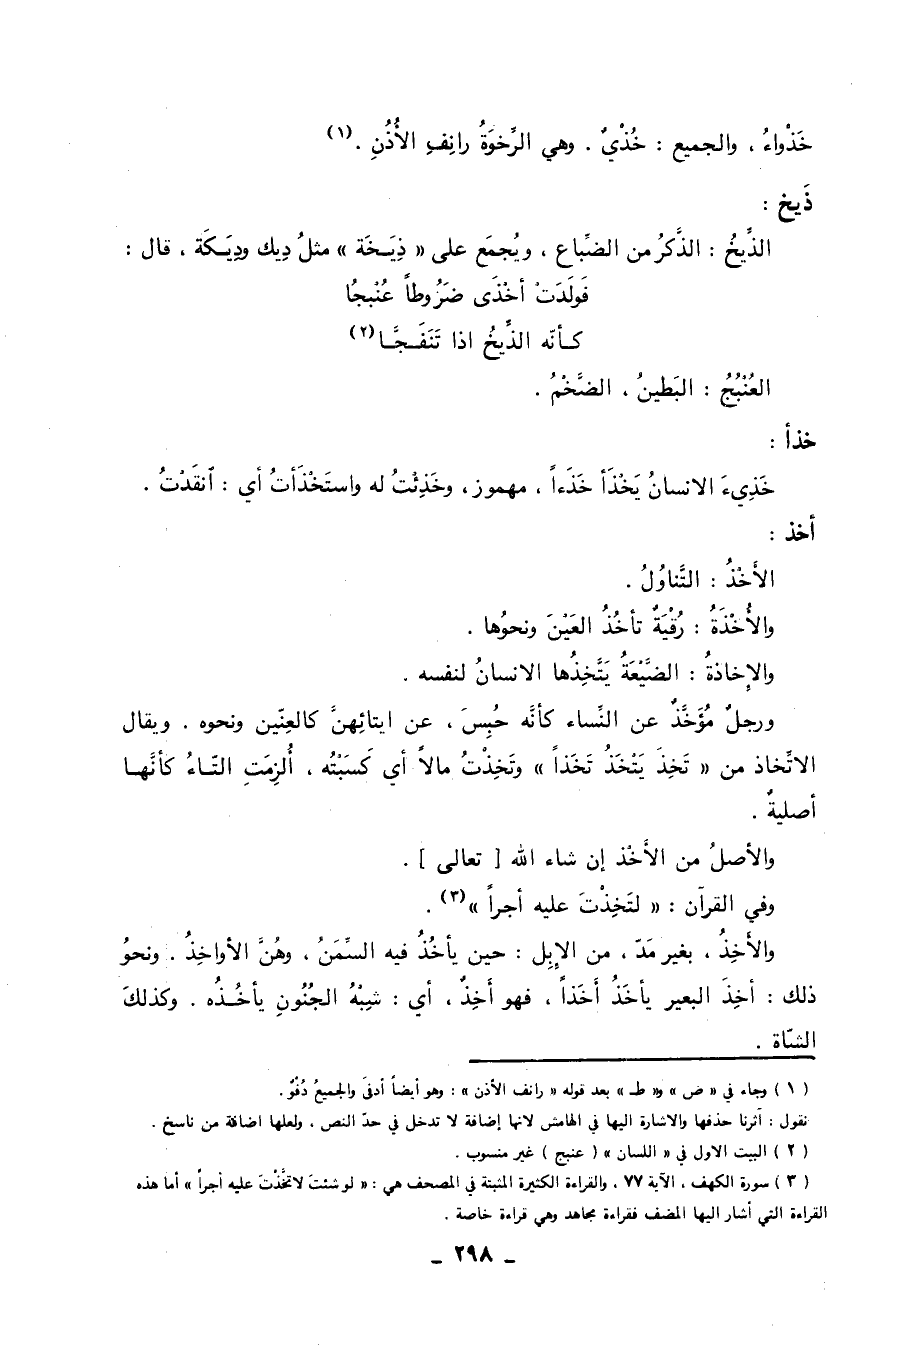 خَذْواءُ ، والجميع : خُذْيٌ . وهي الرِّخوَةُ رانِفِ الأُذُنِ .(١)
ذَيخ :
الذِّيخُ : الذَّكرُ من الضِّباع ، ويُجمَع على « ذِيَـخَة » مثلُ دِيك ودِيَـكَة ، قال :
فَولَدَتْ أخْذَى ضَرُوطاً عُنْبجُا
كـأنّه الذِّيخُ اذا تَنَفَـجَّـا(٢)
العُنْبُجُ : البَطينُ ، الضَّخْمُ .
خذأ :
خَذِيءَ الانسانُ يَخْذَأ خَذَءاً ، مهموز، وخَذِئْتُ له واستَخْذَأتُ أي : ٱنقَدْتُ .
أخذ :
الأَخْذُ : التَّناوُلُ .
والأُخْذَةُ : رُقْيَةٌ تأخُذُ العَيْنَ ونحوُها .
والإِخاذةُ : الضَّيْعَةُ يَتَّخِذُها الانسانُ لنفسه .
ورجلٌ مُؤَخَّذٌ عن النِّساء كأنَّه حُبِسَ ، عن ايتائِهنَّ كالعِنّين ونحوه . ويقال
الاتِّخاذ من « تَخِذَ يَتْخَذُ تَخَذاً » وتَخِذْتُ مالاً أي كَسَبْتُه ، أُلزِمَتِ التّـاءُ كأنَّهـا
أصليةٌ .
والأصلُ من الأَخْذ إن شاء الله [ تعالى ] .
وفي القرآن : « لتَخِذْتَ عليه أجراً »(٣) .
والأَخِذُ ، بغير مَدّ ، من الإِبِل : حين يأخُذُ فيه السِّمَنُ ، وهُنَّ الأواخِذُ . ونحوُ
ذلك : أخِذَ البعير يأخَذُ أَخَذاً ، فهو أَخِذٌ ، أي : شِبْهُ الجُنُونِ يأخُـذُه . وكذلكَ
الشّاة .
( ١ ) وجاء في « ص » و« ط » بعد قوله « رانف الأذن » : وهو أيضاً أدفَى والجميعُ دُفْوٌ .
نقول : آثرنا حذفها والاشارة اليها في الهامش لانها إضافة لا تدخل في حدّ النص ، ولعلها اضافة من ناسخ .
( ٢ ) البيت الاول في « اللسان » ( عنبج ) غير منسوب .
( ٣ ) سورة الكهف ، الآية ٧٧ ، والقراءة الكثيرة المثبتة في المصحف هي : « لو شئت لاتَّخَذْتَ عليه أجراً » أما هذه
القراءة التي أشار اليها المصنف فقراءة مجاهد وهي قراءة خاصة .
ـ ٢٩٨ ـ